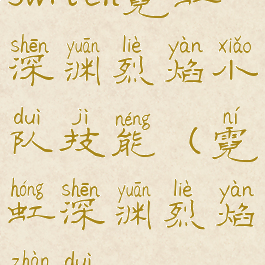 shēn yuān liè yàn xiǎo
深渊烈焰小
duì jì néng ní
队技能（霓
hóng shēn yuān liè yàn
虹深渊烈焰
zhàn duì